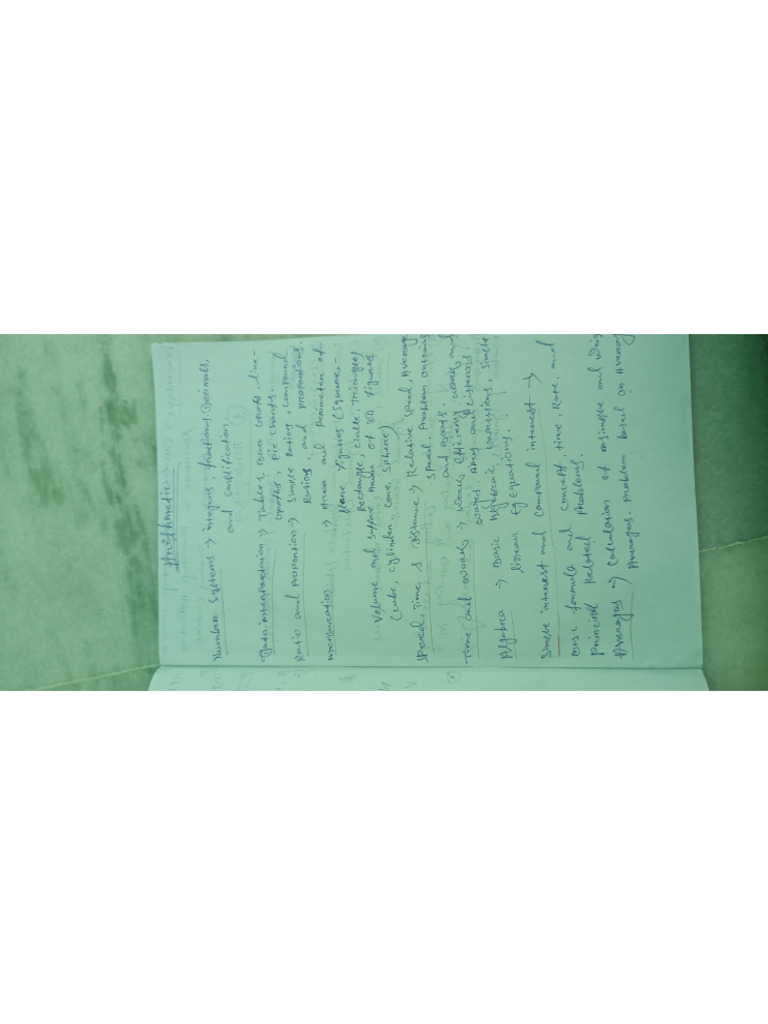 Arithmetic
Number Systems → Integers, fractions, Decimals,
and simplification
Data interpretation → Tables, Bar Graphs, line-
Graphs, Pie charts.
Ratio and Proportion → Simple Ratios, compound
Ratios, and proportions.
mensuration → Area and Perimeter of
Plane figures (Squares,
Rectangle, circle, Triangle)
Volume and surface Area of 3D figures
(cube, cylinder, cone, Sphere)
Speed, Time, & Distance → Relative speed, Average
speed, Problem on trains
and boats.
Time and works → Work Efficiency, work and
wages, Pipes and Cisterns
Algebra → Basic Algebraic Expressions, Simple
linear Equations.
Simple interest and Compound interest →
Basic formula and concept time, Rate, and
Principal Related Problems.
Averages → Calculation of simple and weig
Averages. Problem based on Averag